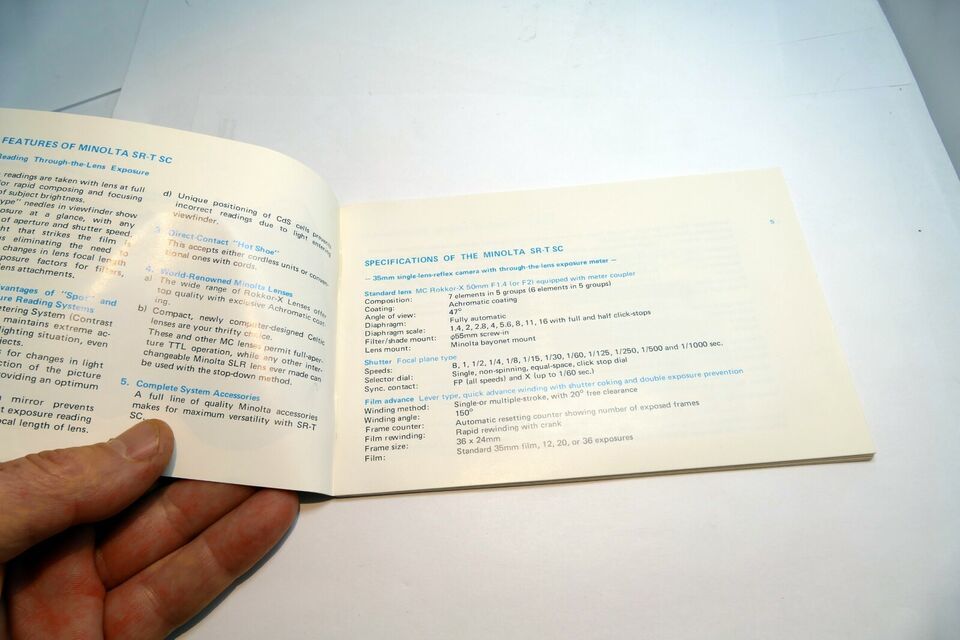 FEATURES OF MINOLTA SR-T SC
Reading Through-the-Lens Exposure
readings are taken with lens at full
or rapid composing and focusing
of subject brightness.
ype" needles in viewfinder show
osure at a glance, with any
of aperture and shutter speed.
ht that strikes the film is
s eliminating the need to
changes in lens focal length
posure factors for filters,
lens attachments.
dvantages of "Spot" and
ure Reading Systems
etering System (Contrast
maintains extreme ac-
lighting situation, even
s for changes in light
ction of the picture
roviding an optimum
mirror prevents
t exposure reading
ocal length of lens.
d) Unique positioning of CdS cells prevents
incorrect readings due to light entering
viewfinder.
3. Direct-Contact "Hot Shoe"
This accepts either cordless units or conven-
tional ones with cords.
4. World-Renowned Minolta Lenses
a) The wide range of Rokkor-X Lenses offer
top quality with exclusive Achromatic coat-
ing.
b) Compact, newly computer-designed Celtic
lenses are your thrifty choice.
These and other MC lenses permit full-aper-
ture TTL operation, while any other inter-
changeable Minolta SLR lens ever made can
be used with the stop-down method.
5. Complete System Accessories
A full line of quality Minolta accessories
makes for maximum versatility with SR-T
SC.
5
SPECIFICATIONS OF THE MINOLTA SR-T SC
— 35mm single-lens-reflex camera with through-the-lens exposure meter —
Standard lens MC Rokkor-X 50mm F1.4 (or F2) equipped with meter coupler
Composition: 7 elements in 5 groups (6 elements in 5 groups)
Coating: Achromatic coating
Angle of view: 47°
Diaphragm: Fully automatic
Diaphragm scale: 1.4, 2, 2.8, 4, 5.6, 8, 11, 16 with full and half click-stops
Filter/shade mount: φ55mm screw-in
Lens mount: Minolta bayonet mount
Shutter Focal plane type
Speeds: B, 1, 1/2, 1/4, 1/8, 1/15, 1/30, 1/60, 1/125, 1/250, 1/500 and 1/1000 sec.
Selector dial: Single, non-spinning, equal-space, click-stop dial
Sync. contact: FP (all speeds) and X (up to 1/60 sec.)
Film advance Lever type, quick advance winding with shutter coking and double exposure prevention
Winding method: Single-or multiple-stroke, with 20° free clearance
Winding angle: 150°
Frame counter: Automatic resetting counter showing number of exposed frames
Film rewinding: Rapid rewinding with crank
Frame size: 36 x 24mm
Film: Standard 35mm film, 12, 20, or 36 exposures